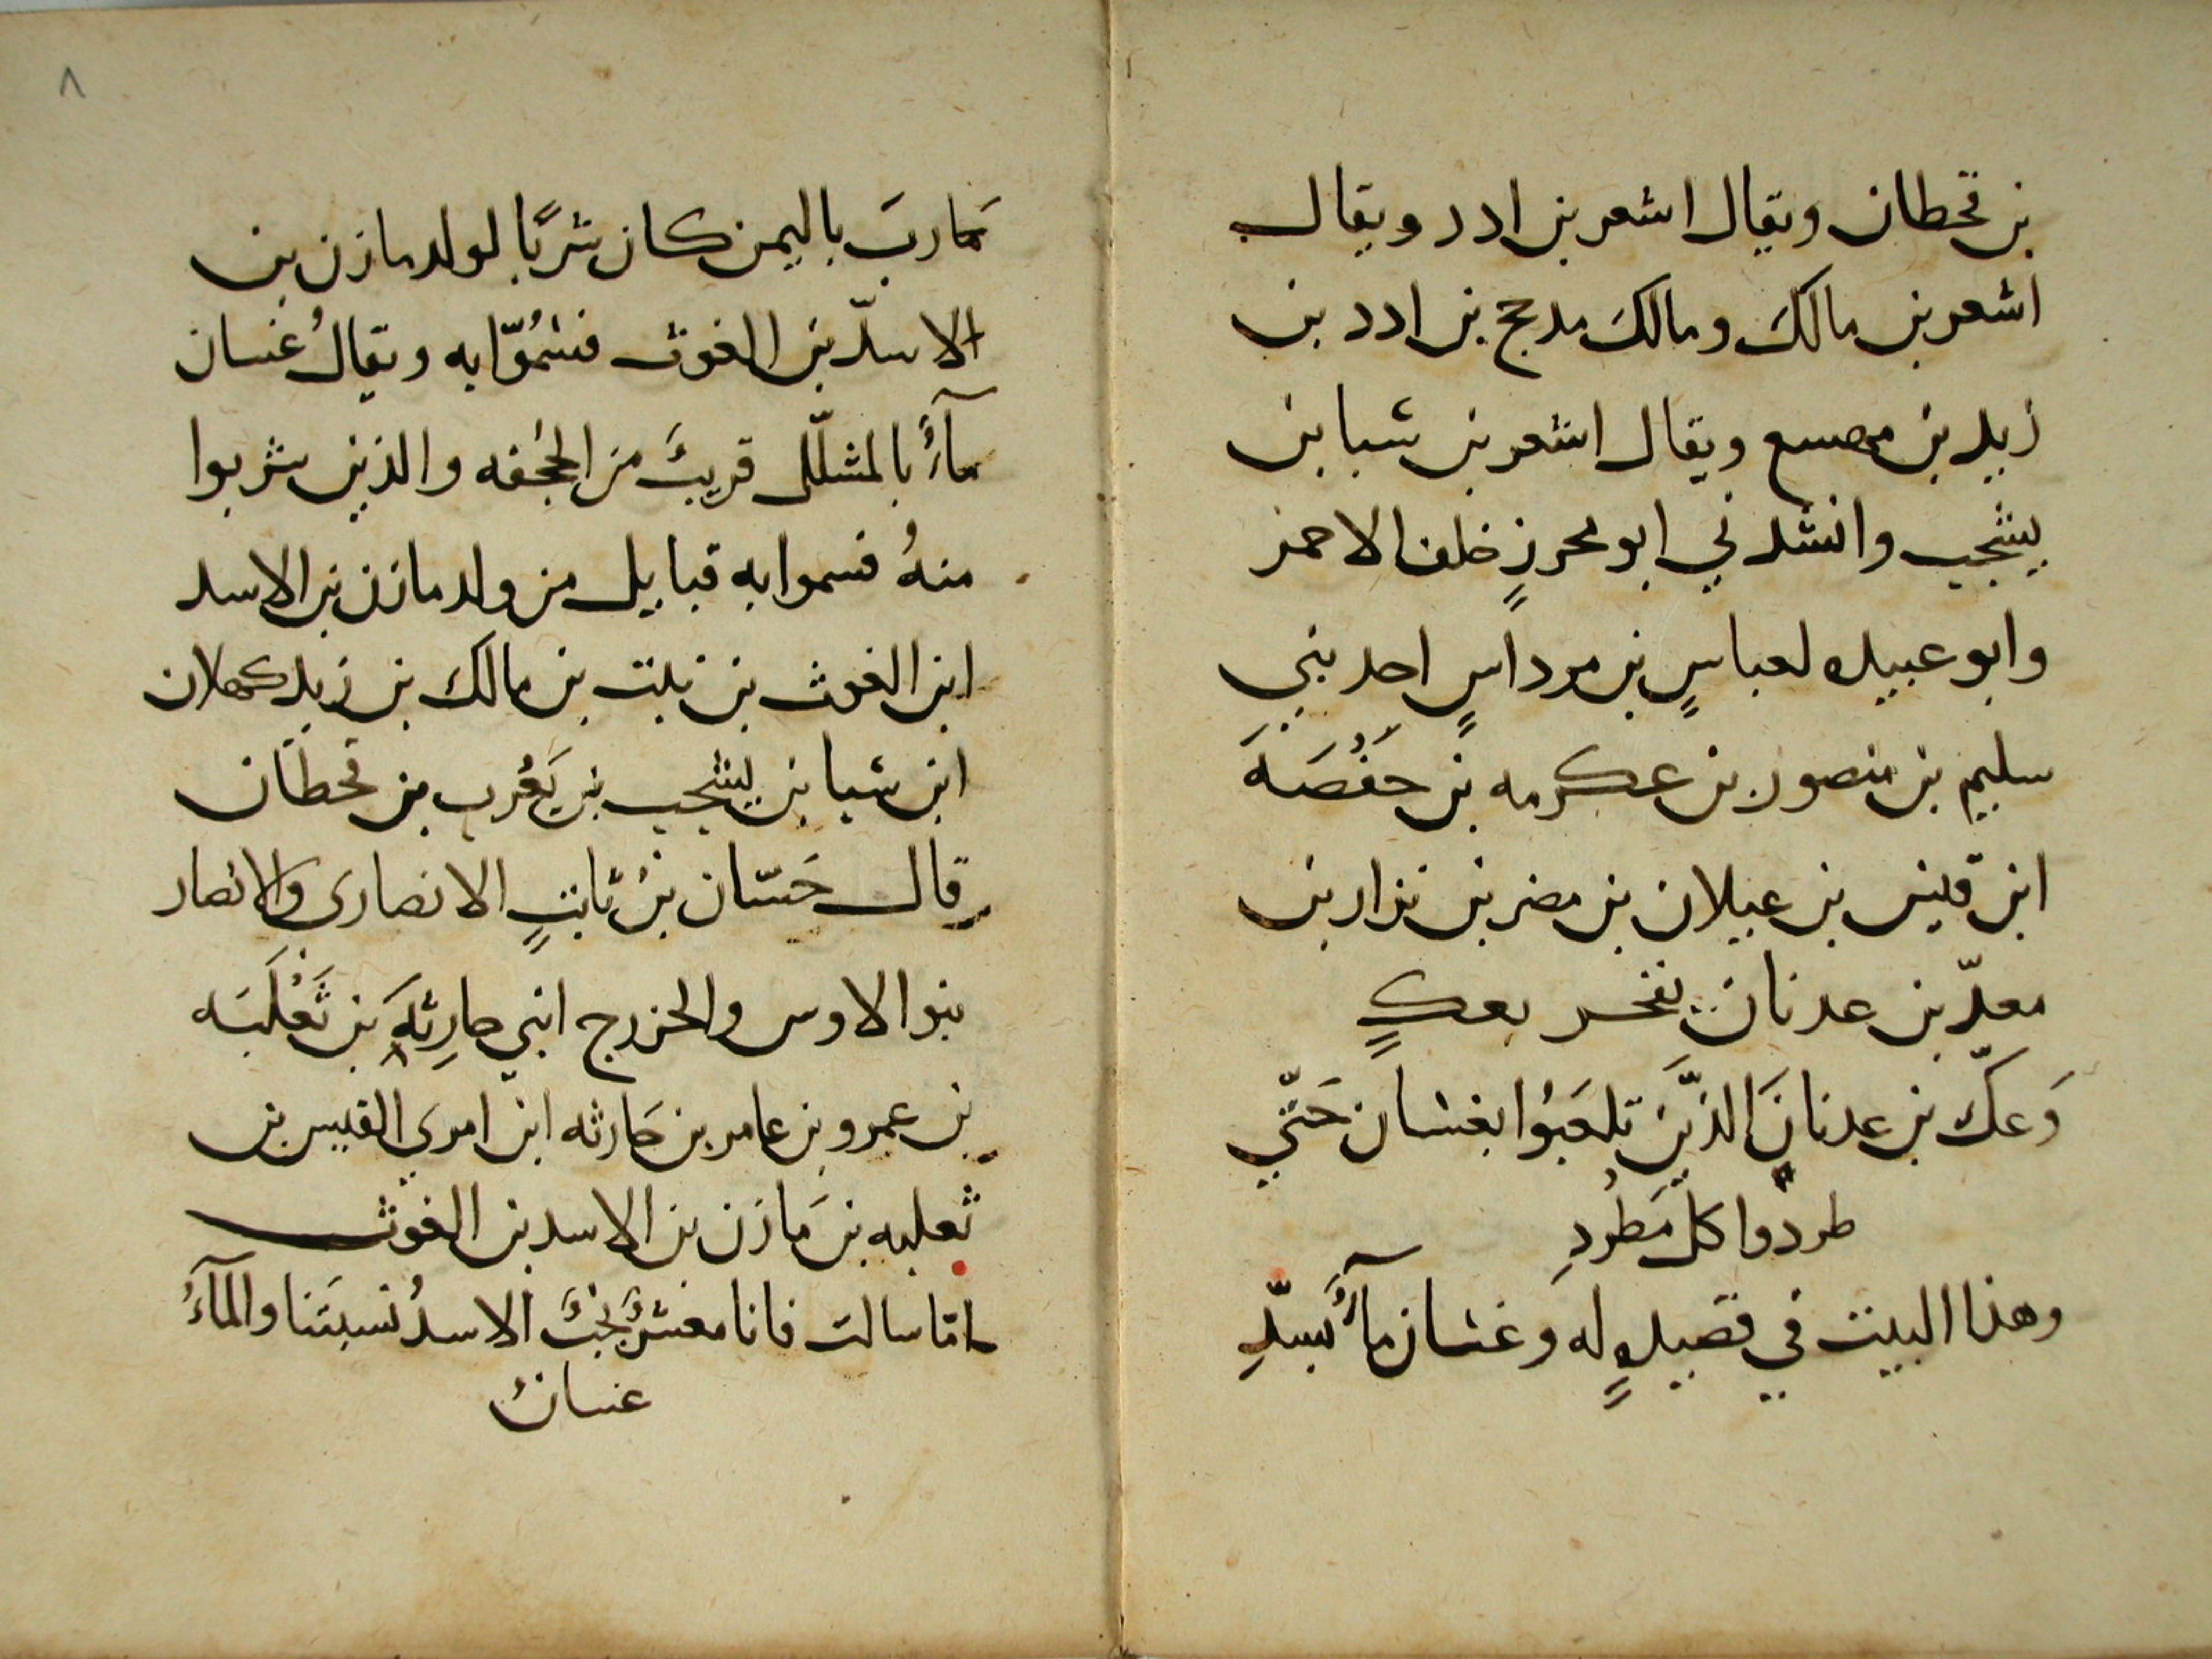 بن قحطان ويقال اشعر بن ادد ويقال
اشعر بن مالك ومالك مدحج بن ادد بن
زيد بن مهسع ويقال اشعر بن سبا بن
يشجب وانشدني ابو محرزٍ خلف الاحمر
وابو عبيده لعباسٍ بن مرداسٍ احد بني
سليم بن منصور بن عكرمه بن حفصَهَ
ابن قيس بن عيلان بن مضر بن نزار بن
معدّ بن عدنان يفخر بعكٍ
وَعكّ بن عدنانَ الذّينَ تلعَبُوا بغسان حَتّي
طردوا كلّ مَطردِ
وهذا البيت في قصيدهٍ له وغسان مآءٌ بسدّ
مَاربَ باليمن كان شربًا لولد مازن بن
الاسدّ بن الغوث فسُمُّوا به ويقالُ غسان
مآءٌ بالمشلّل قريبٌ من الجُحفه والذين شربوا
منهُ فسموا به قبايل من ولد مازن بن الاسد
ابن الغوث بن نبت بن مالك بن زيد كهلان
ابن سبا بن يشجب بن يَعْرب بن قحطان
قال حَسّان بنُ ثابتٍ الانصاري والانصار
بنو الاوس والخزرج ابني حارِثهَ بن ثَعْلَبَه
بن عمرو بن عامر بن حَارثه ابن امري القيس بن
ثعلبه بن مَازن بن الاسد بن الغوث
امّا سالت فانا معشرٌ نُجُبٌ الاسدُ نسبَتنا والمآءُ
غسانُ
٨